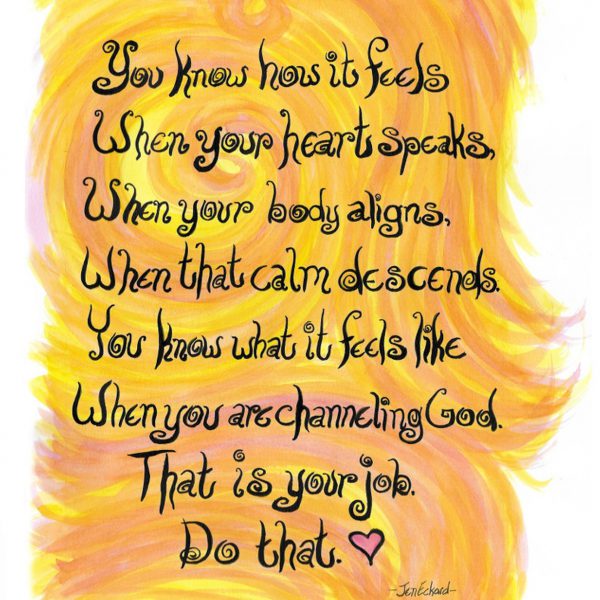 You know how it feels
When your heart speaks,
When your body aligns,
When that calm descends.
You know what it feels like
When you are channeling God.
That is your job.
Do that.
-Jen Eckard-